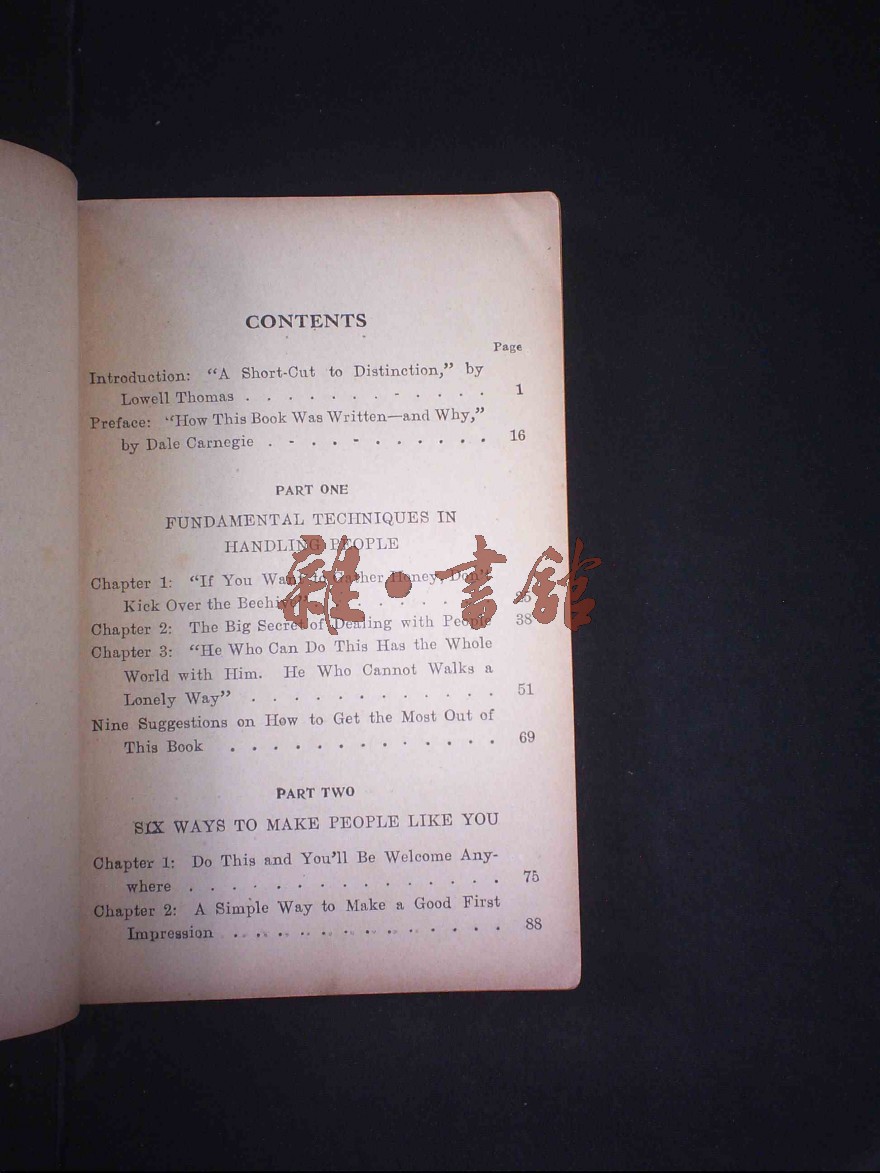 CONTENTS
Page
Introduction: "A Short-Cut to Distinction," by
Lowell Thomas . . . . . . . . . . . . 1
Preface: "How This Book Was Written—and Why,"
by Dale Carnegie . . . . . . . . . . . 16
PART ONE
FUNDAMENTAL TECHNIQUES IN
HANDLING PEOPLE
Chapter 1: "If You Want to Gather Honey, Don't
Kick Over the Beehive" . . . . . . . . 25
Chapter 2: The Big Secret of Dealing with People 38
Chapter 3: "He Who Can Do This Has the Whole
World with Him. He Who Cannot Walks a
Lonely Way" . . . . . . . . . . . . 51
Nine Suggestions on How to Get the Most Out of
This Book . . . . . . . . . . . . . 69
PART TWO
SIX WAYS TO MAKE PEOPLE LIKE YOU
Chapter 1: Do This and You'll Be Welcome Any-
where . . . . . . . . . . . . . . . 75
Chapter 2: A Simple Way to Make a Good First
Impression . . . . . . . . . . . . . 88
雜·書館